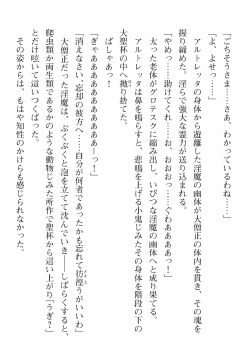 「ごちそうさま……さあ、わかっているわね……」
「よ、よせっ……」
　アルトレッタの身体から遊離した淫魔の幽体が大僧正の体内を貫き、その魂を
握り締めた。淫らで強大な霊力が送り込まれる。
「やめっ……助けてくれ……お、おおっ……ぐわああああっ！」
　太った老体がグロテスクに縮み出し、いびつな淫魔の幽体へと成り果てる。
　アルトレッタは鼻を鳴らすと、悲鳴を上げる小鬼じみたその身体を階段の下の
大聖杯の中へ拗り捨てた。
　ばしゃあっ！
「ぎゃあああああああああぁーっ！」
「消えなさい、忘却の彼方へ……自分が何者であったかも忘れて彷徨うがいいわ」
さまよ
　大僧正だった淫魔は、ぶくぶくと泡を立てて沈んでいき――しばらくすると、
爬虫類か両生類であるかのような動物じみた所作で聖杯から這い上がり「うぎ？」
とだけ呟いて這いつくばった。
　その姿からは、もはや知性のかけらも感じられなかった。